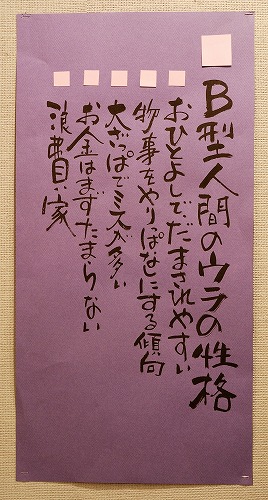 B型人間のウラの性格
おひとよしで、だまされやすい
物事をやりっぱなしにする傾向
大ざっぱでミスが多い
お金はまずたまらない
浪費家